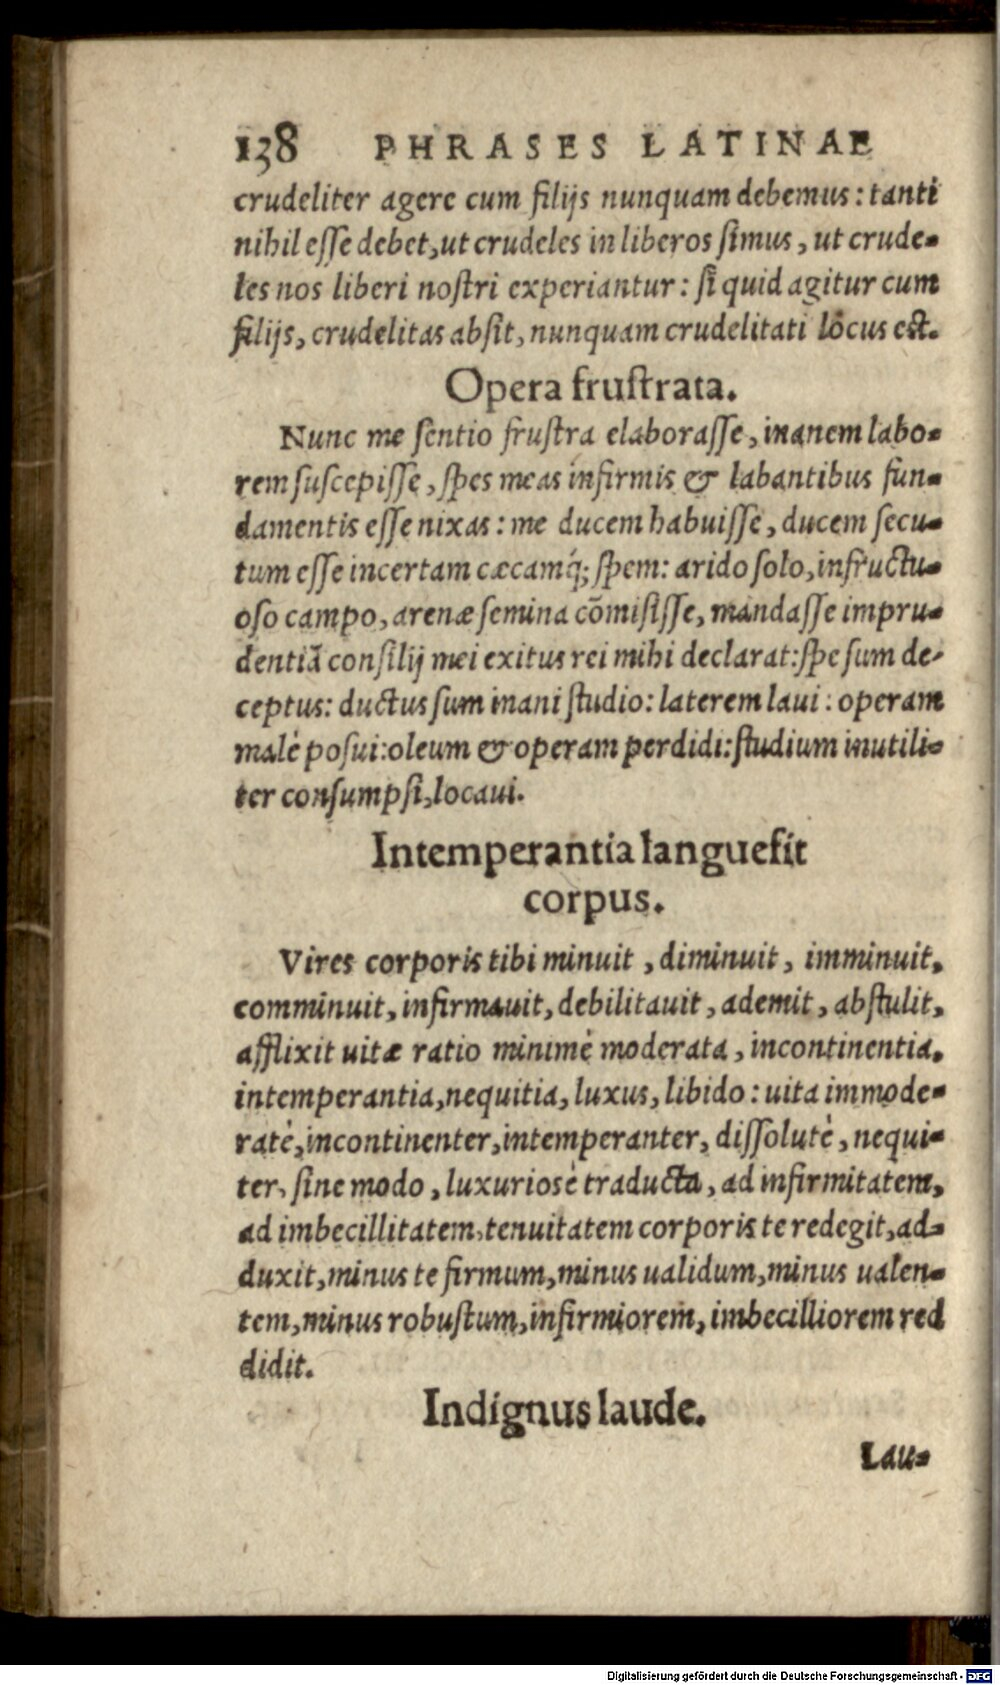 138 PHRASES LATINAE
crudeliter agere cum filijs nunquam debemus: tanti
nihil esse debet, ut crudeles in liberos simus, ut crude-
les nos liberi nostri experiantur: si quid agitur cum
filijs, crudelitas absit, nunquam crudelitati locus est.
Opera frustrata.
Nunc me sentio frustra elaborasse, inanem labo-
rem suscepisse, spes meas infirmis & labantibus fun-
damentis esse nixas: me ducem habuisse, ducem secu-
tum esse incertam cæcamq́; spem: arido solo, infructu-
oso campo, arenæ semina cōmisisse, mandasse impru-
dentiā consilij mei exitus rei mihi declarat: spe sum de-
ceptus: ductus sum inani studio: laterem laui: operam
malè posui: oleum & operam perdidi: studium inutili-
ter consumpsi, locaui.
Intemperantia languefit
corpus.
Vires corporis tibi minuit, diminuit, imminuit,
comminuit, infirmauit, debilitauit, ademit, abstulit,
afflixit uitæ ratio minimè moderata, incontinentia,
intemperantia, nequitia, luxus, libido: uita immode-
ratè, incontinenter, intemperanter, dissolutè, nequi-
ter, sine modo, luxuriosè traducta, ad infirmitatem,
ad imbecillitatem, tenuitatem corporis te redegit, ad-
duxit, minus te firmum, minus ualidum, minus ualen-
tem, minus robustum, infirmiorem, imbecilliorem red
didit.
Indignus laude.
Lau-
Digitalisierung gefördert durch die Deutsche Forschungsgemeinschaft - DFG